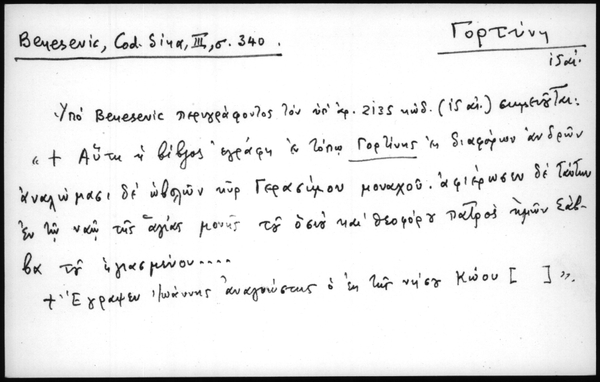 Benesevic, Cod. Sina, III, σ. 340.
Γορτύνη
ιϛ αἰ.
Ὑπό Benesevic περιγράφοντος τόν ὑπ' ἀρ. 2135 κώδ. (ιϛ αἰ.) σημειοῦται:
« + Αὕτη ἡ βίβλος ἐγράφη ἐν τόπῳ Γορτύνης ἐκ διαφόρων ἀνδρῶν
ἀναλώμασι δέ ὠβολῶν κῦρ Γερασίμου μοναχοῦ. ἀφιέρωσεν δέ ταύτην
ἐν τῷ ναῷ τῆς ἁγίας μονῆς τοῦ ὁσίου καί θεοφόρου πατρός ἡμῶν Σάβ-
βα τοῦ ἡγιασμένου....
+ Ἔγραψεν Ἰωάννης ἀναγνώστης ὁ ἐκ τῆς νήσου Κώου [ ] ».